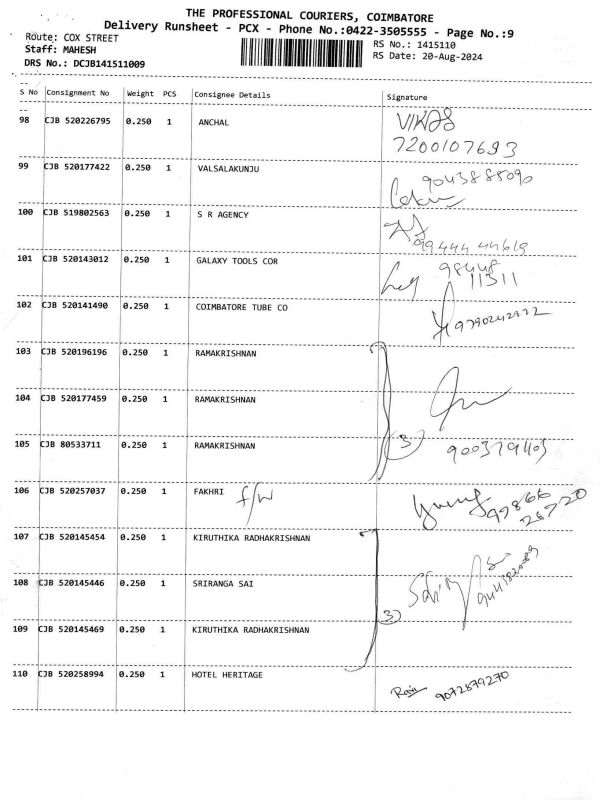 THE PROFESSIONAL COURIERS, COIMBATORE
Delivery Runsheet - PCX - Phone No.:0422-3505555 - Page No.:9
Route: COX STREET
Staff: MAHESH
DRS No.: DCJB141511009
RS No.: 1415110
RS Date: 20-Aug-2024
S No Consignment No Weight PCS Consignee Details Signature
98 CJB 520226795 0.250 1 ANCHAL VIKAS
7200107693
99 CJB 520177422 0.250 1 VALSALAKUNJU
100 CJB 519802563 0.250 1 S R AGENCY
99444 44619
101 CJB 520143012 0.250 1 GALAXY TOOLS COR 98448
11311
102 CJB 520141490 0.250 1 COIMBATORE TUBE CO
103 CJB 520196196 0.250 1 RAMAKRISHNAN
104 CJB 520177459 0.250 1 RAMAKRISHNAN
3
105 CJB 80533711 0.250 1 RAMAKRISHNAN
106 CJB 520257037 0.250 1 FAKHRI f/w 99866
26720
107 CJB 520145454 0.250 1 KIRUTHIKA RADHAKRISHNAN
108 CJB 520145446 0.250 1 SRIRANGA SAI
3
109 CJB 520145469 0.250 1 KIRUTHIKA RADHAKRISHNAN
110 CJB 520258994 0.250 1 HOTEL HERITAGE Ravi 9072879270